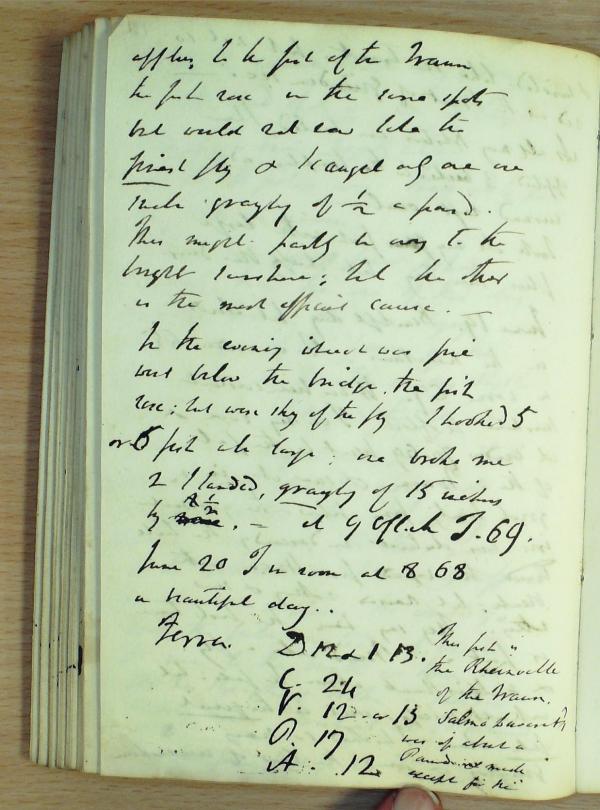 to the foot of the Traun
the fish rose in the same spots
but would not now take the
finest fly & I caught only one
grayling of ½ a pound.
This might partly be owing to the
bright sunshine; but the other
is the most efficient cause. —
In the evening which was fine
went below the bridge. the fish
rose; but were shy of the fly I hooked 5
or 6 fish all large; one broke me
2 I landed, grayling of 15 inches
by 8½. — at 9 T. 69.
June 20 T in room at 8 68
a beautiful day..
D 12 & 1 13.
C. 24
V. 12 or 13
P. 17
A. 12
This fish is
the
of the Traun.
Salmo
was of about a
Pound
except for